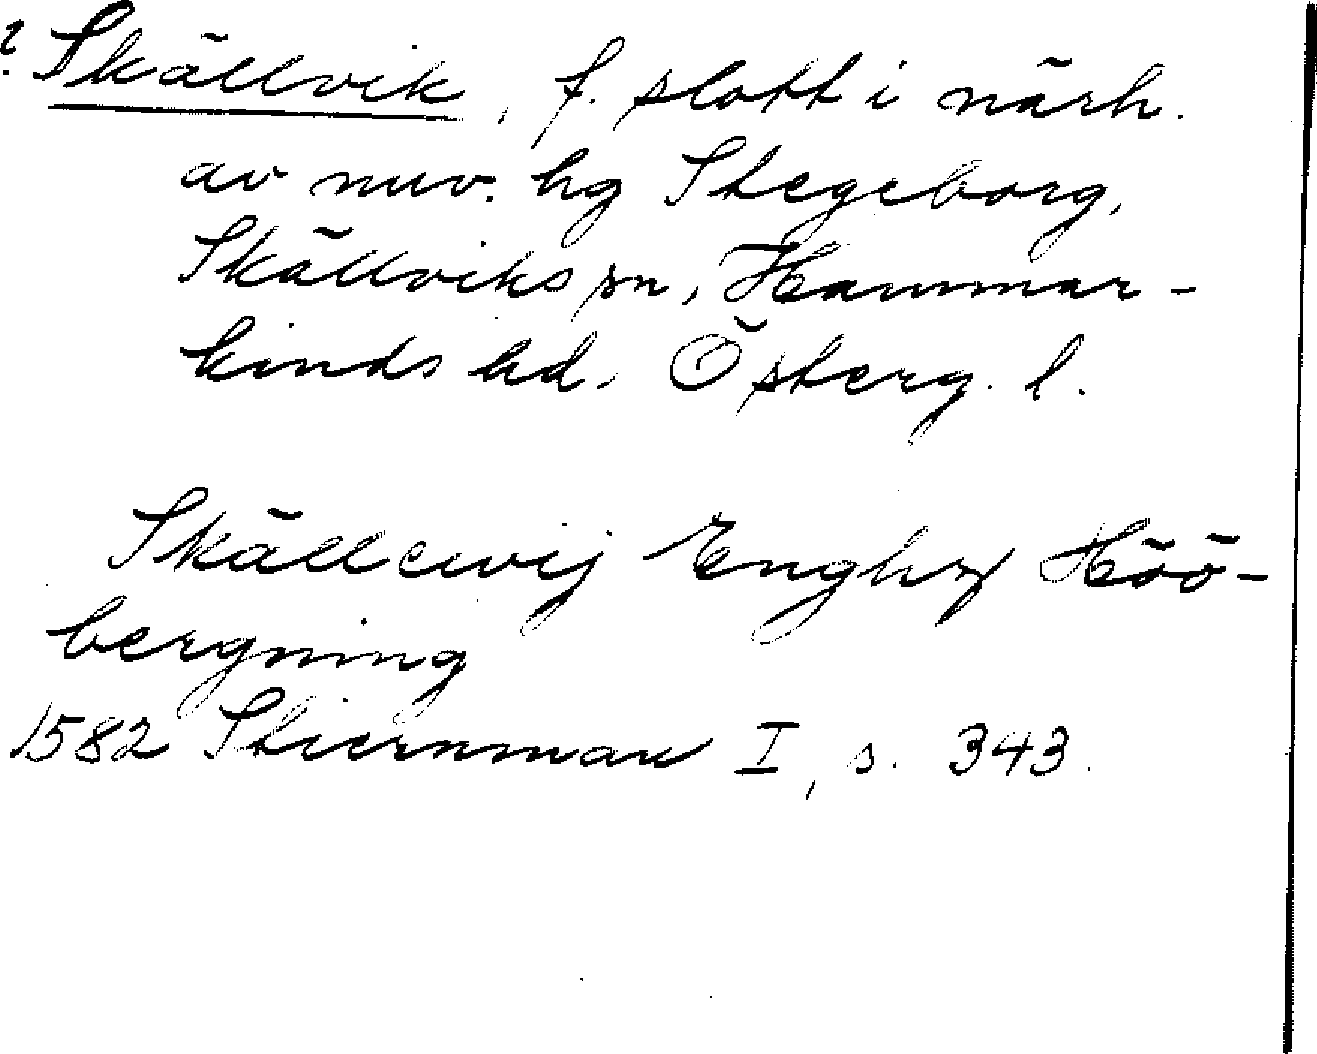 ? Skällvik, f. slott i närh.
av nuv. hg Stegeborg,
Skällviks sn, Hammar-
kinds hd. Österg. l.
Skällewij Enghz Höö-
bergning
1582 Stiernman I, s. 343.